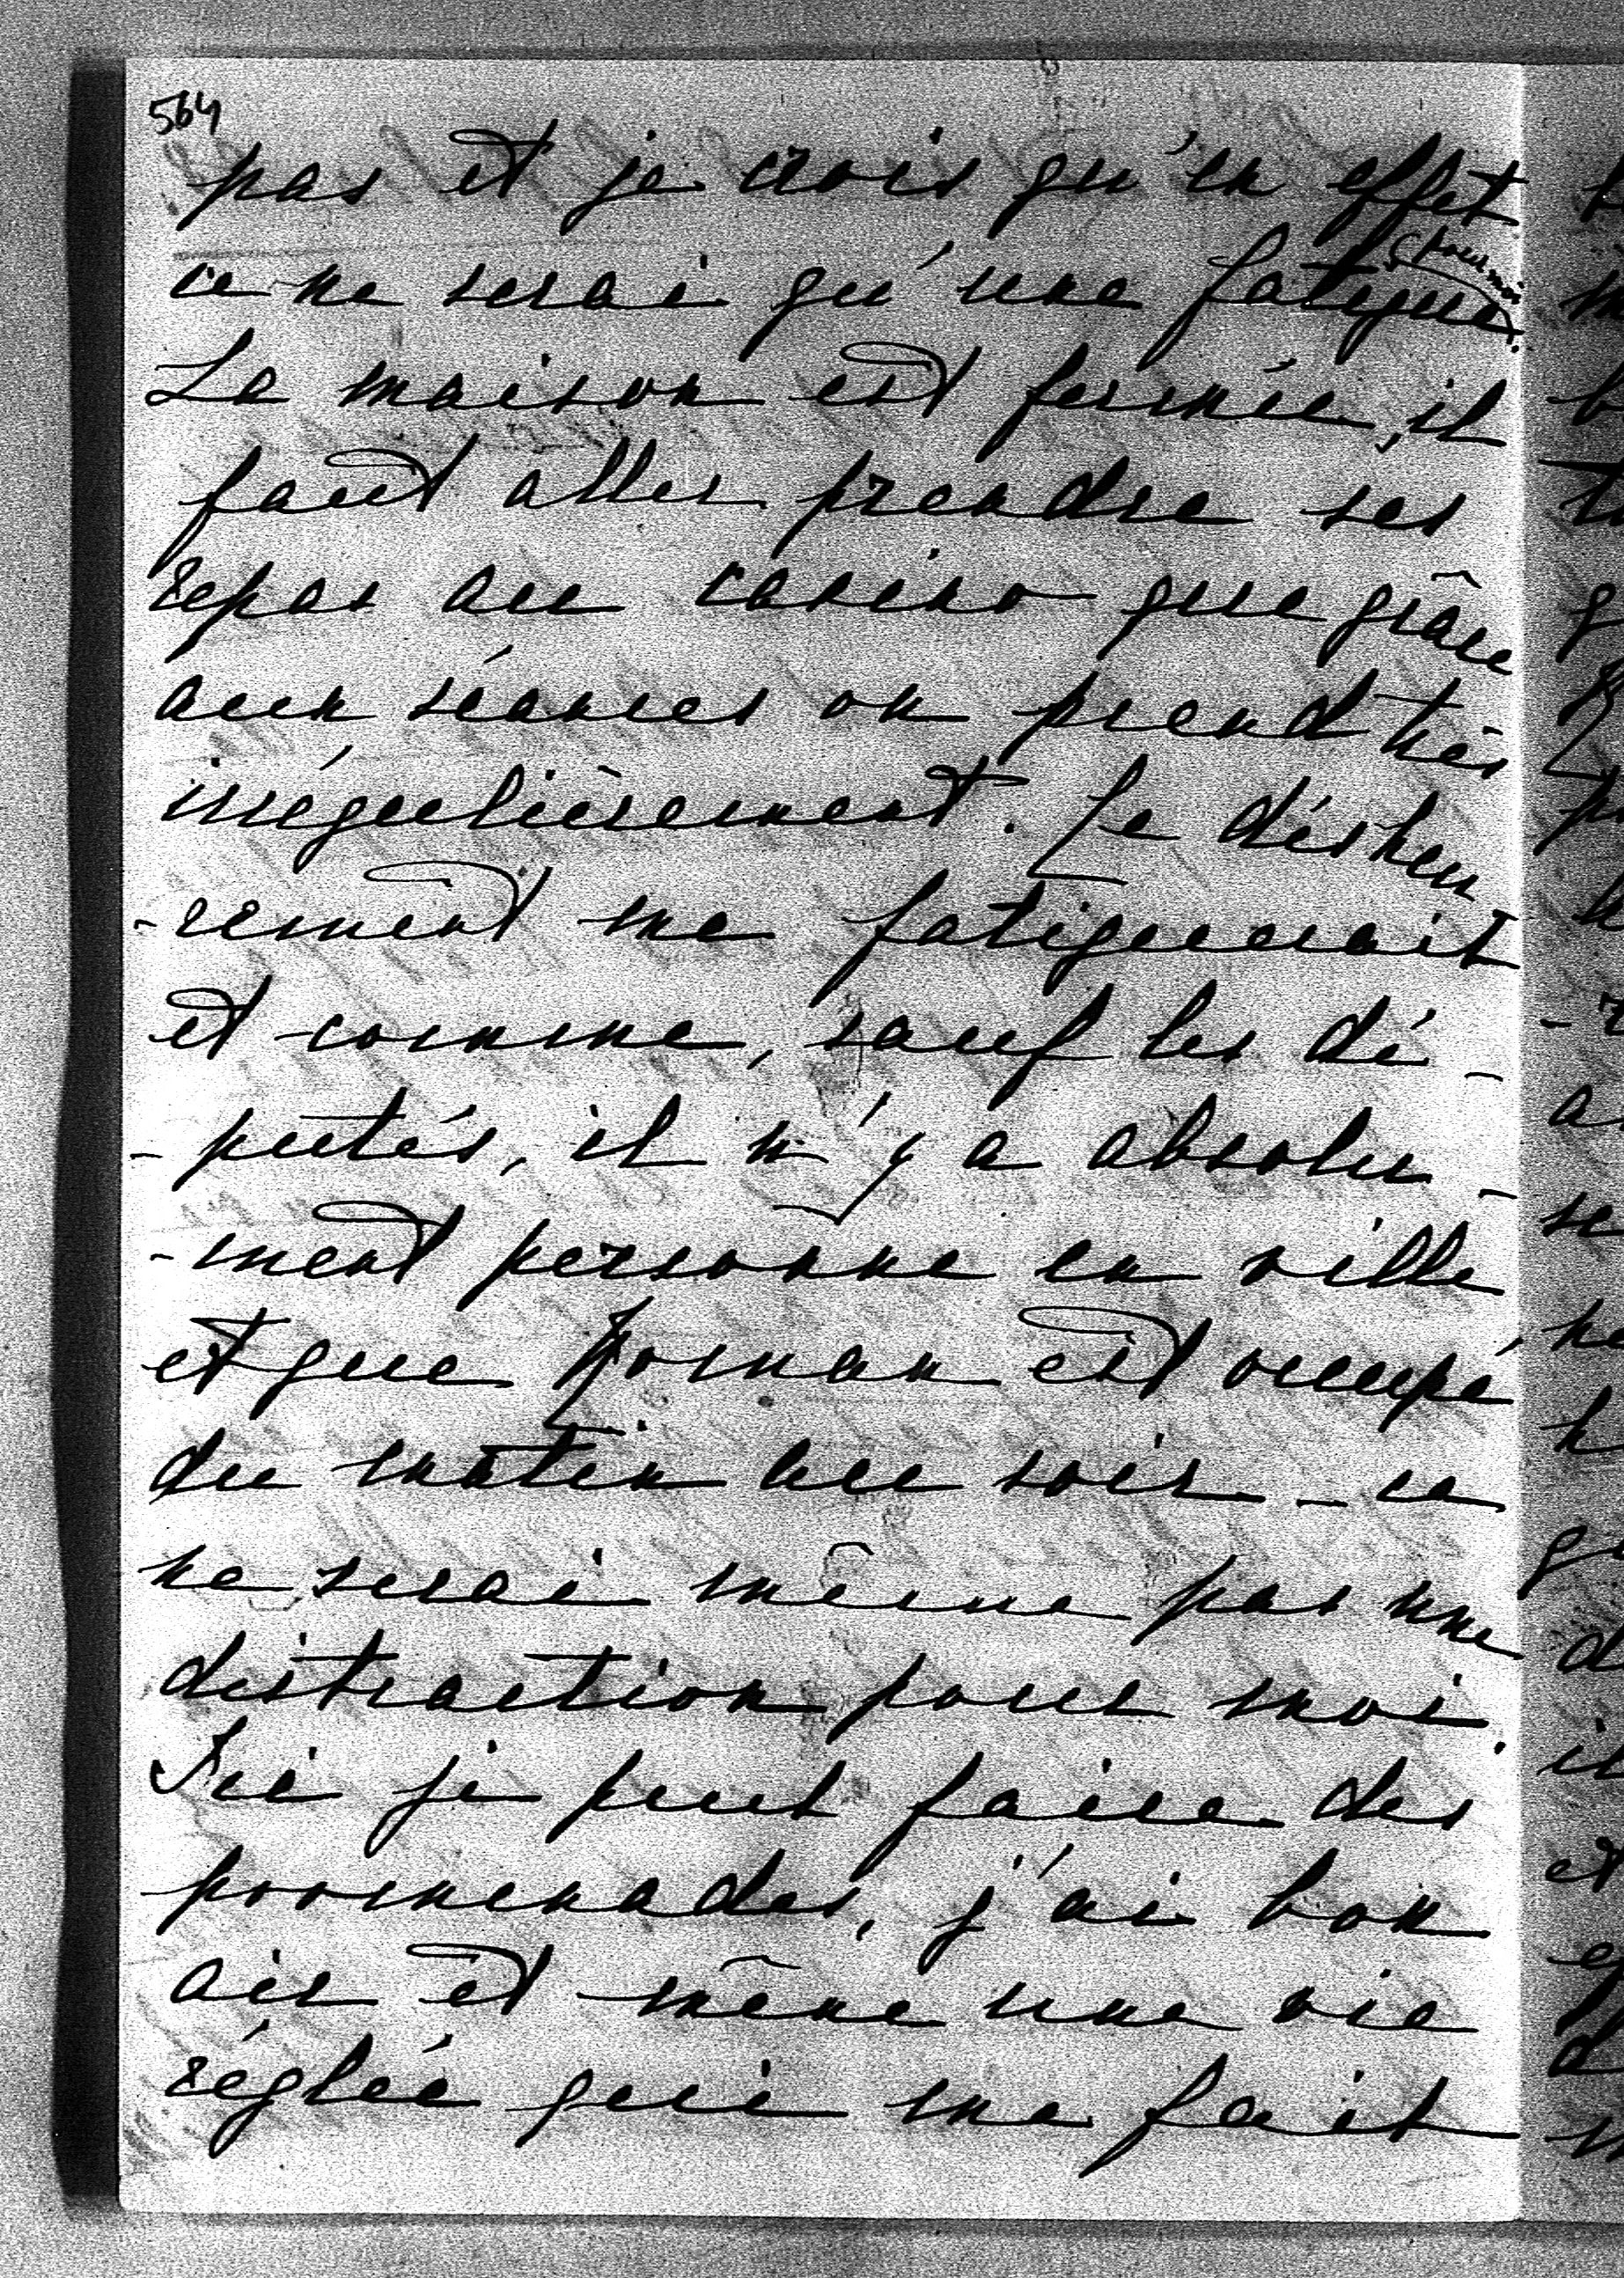 564
pas et je crois qu'en effet
ce ne serai qu'une fatigue (pour moi).
La maison est fermée, il
faut aller prendre ses
repas au casino que grâce
aux séances on prend très
irrégulièrement. Ce désheu
-rement me fatiguerait
et comme, sauf les dé-
-putés, il n'y a absolu-
-ment personne en ville
et que Zoman est occupé
du matin au soir - ce
ne serai même pas une
distraction pour moi.
Ici je peut faire des
promenades, j'ai bon
air et même une vie
réglée qui me fait